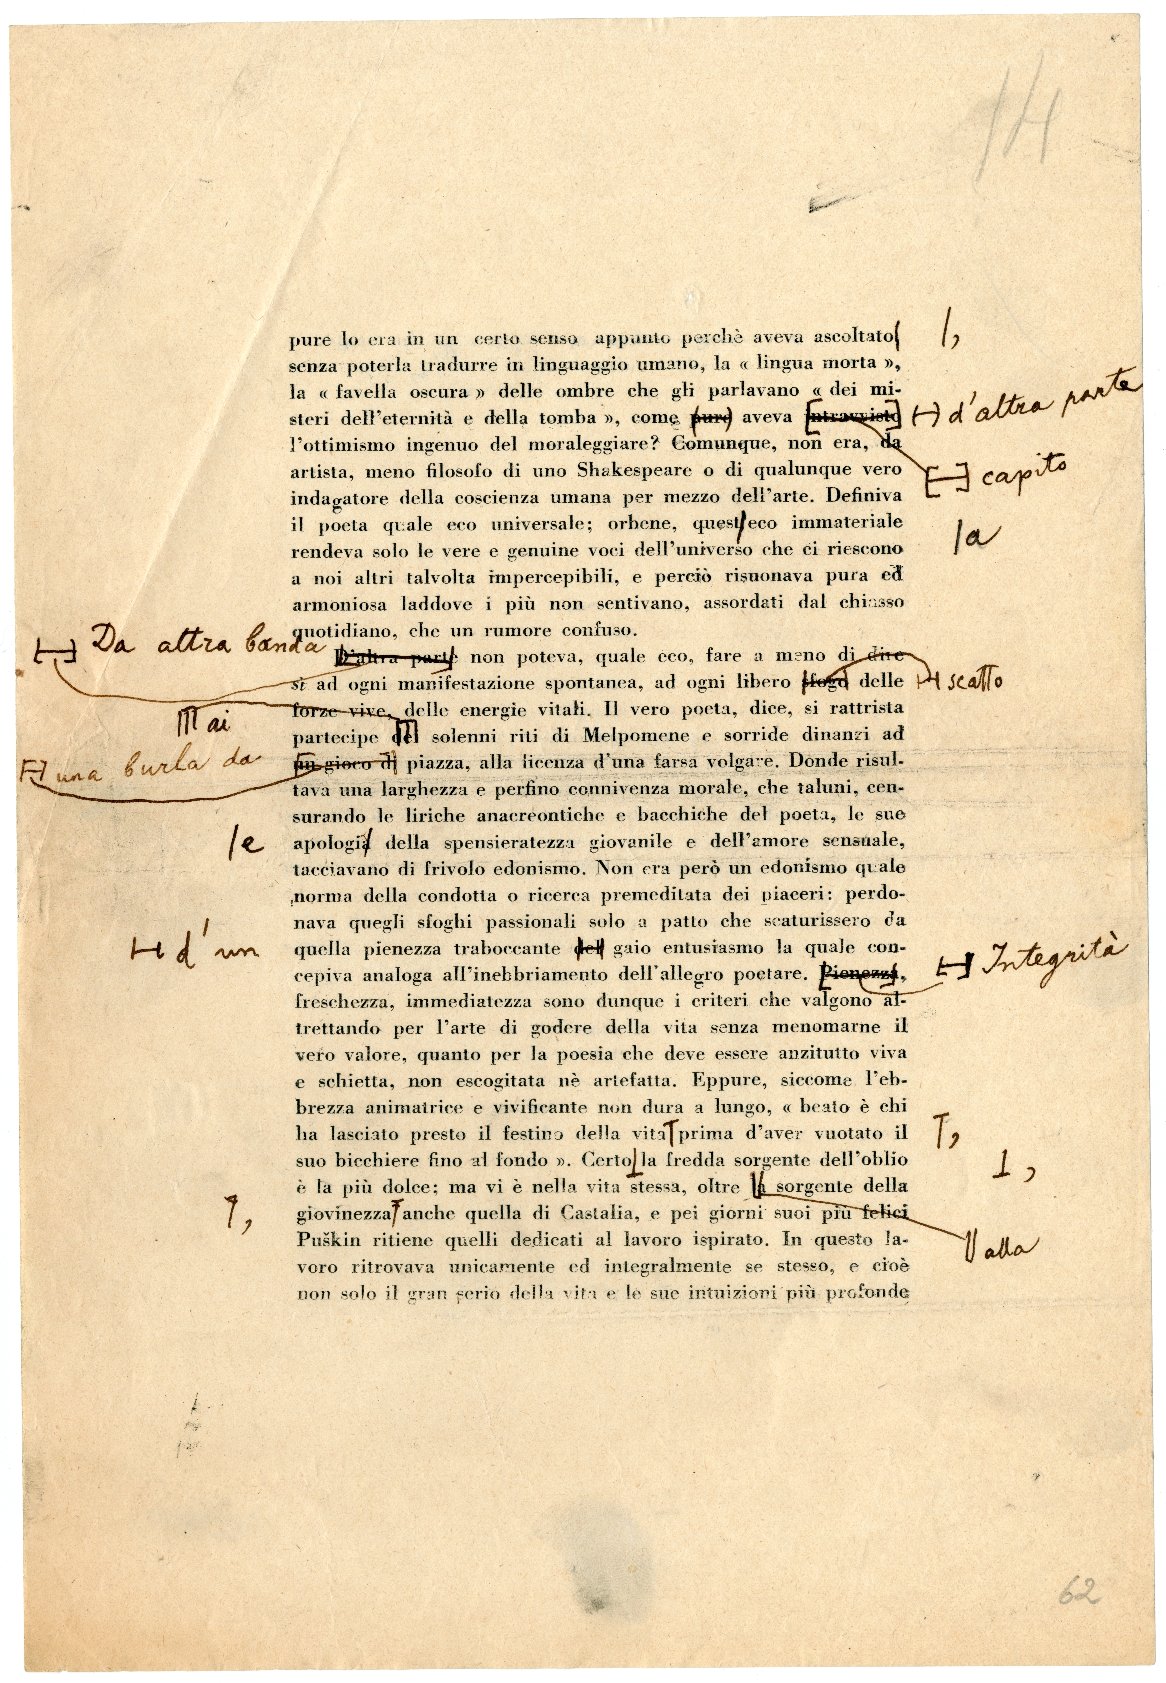 14
pure lo era in un certo senso appunto perchè aveva ascoltato ,
senza poterla tradurre in linguaggio umano, la « lingua morta »,
la « favella oscura » delle ombre che gli parlavano « dei mi-
steri dell'eternità e della tomba », come pure aveva intravvisto d'altra parte
l'ottimismo ingenuo del moraleggiare? Comunque, non era, da
artista, meno filosofo di uno Shakespeare o di qualunque vero capito
indagatore della coscienza umana per mezzo dell'arte. Definiva
il poeta quale eco universale; orbene, quest'eco immateriale a
rendeva solo le vere e genuine voci dell'universo che ci riescono
a noi altri talvolta impercepibili, e perciò risuonava pura ed
armoniosa laddove i più non sentivano, assordati dal chiasso
quotidiano, che un rumore confuso.
Da altra banda
D'altra parte non poteva, quale eco, fare a meno di dire
sì ad ogni manifestazione spontanea, ad ogni libero sfogo delle scatto
forze vive, delle energie vitali. Il vero poeta, dice, si rattrista
ai
partecipe dei solenni riti di Melpomene e sorride dinanzi ad
una burla da
un gioco di piazza, alla licenza d'una farsa volgare. Donde risul-
tava una larghezza e perfino connivenza morale, che taluni, cen-
surando le liriche anacreontiche e bacchiche del poeta, le sue
e apologia della spensieratezza giovanile e dell'amore sensuale,
tacciavano di frivolo edonismo. Non era però un edonismo quale
norma della condotta o ricerca premeditata dei piaceri: perdo-
nava quegli sfoghi passionali solo a patto che scaturissero da
d'un quella pienezza traboccante del gaio entusiasmo la quale con-
cepiva analoga all'inebbriamento dell'allegro poetare. Pienezza, Integrità
freschezza, immediatezza sono dunque i criteri che valgono al-
trettando per l'arte di godere della vita senza menomarne il
vero valore, quanto per la poesia che deve essere anzitutto viva
e schietta, non escogitata nè artefatta. Eppure, siccome l'eb-
brezza animatrice e vivificante non dura a lungo, « beato è chi
ha lasciato presto il festino della vita prima d'aver vuotato il ,
suo bicchiere fino al fondo ». Certo la fredda sorgente dell'oblio ,
è la più dolce; ma vi è nella vita stessa, oltre la sorgente della
, giovinezza anche quella di Castalia, e pei giorni suoi più felici
Puškin ritiene quelli dedicati al lavoro ispirato. In questo la- alla
voro ritrovava unicamente ed integralmente se stesso, e cioè
non solo il gran serio della vita e le sue intuizioni più profonde
62